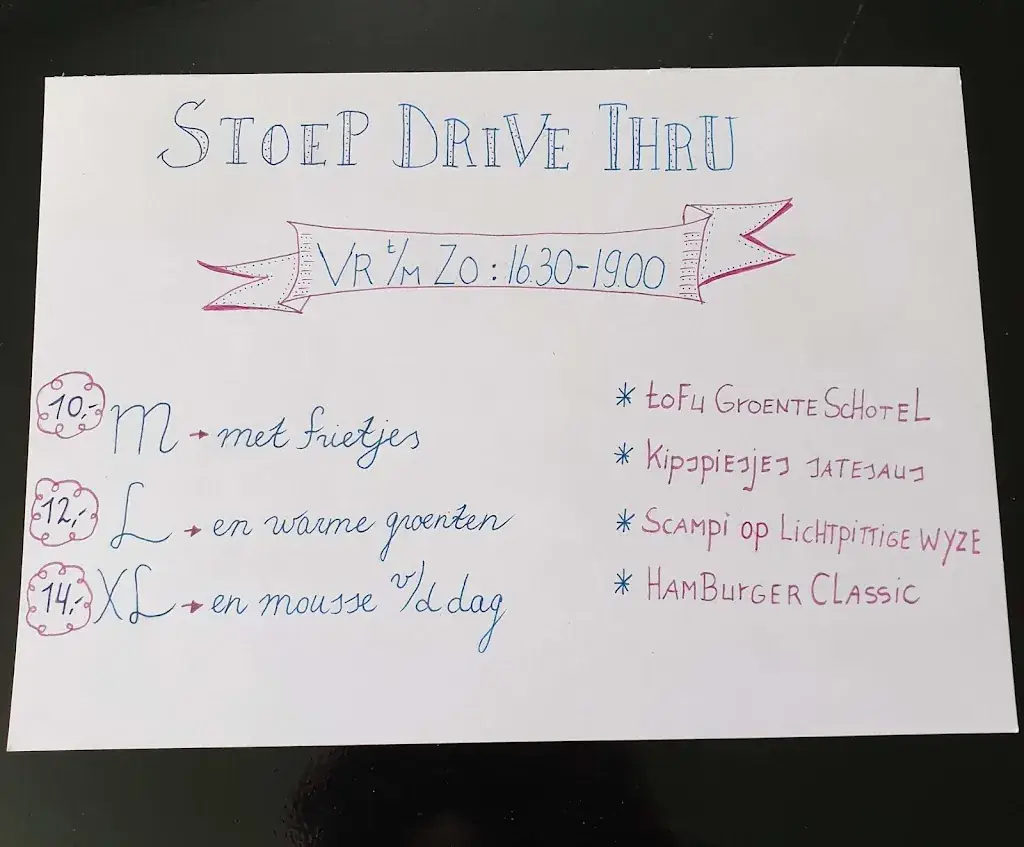 STOEP DRIVE THRU
VR t/m ZO : 16.30-19.00
10,- M → met frietjes
12,- L → en warme groenten
14,- XL → en mousse v/d dag
* toFu GROENTE SCHOTEL
* KipspiEsjEs SATESAUS
* SCAMPI op LICHTPITTIGE WYZE
* HAMBURGER CLASSIC